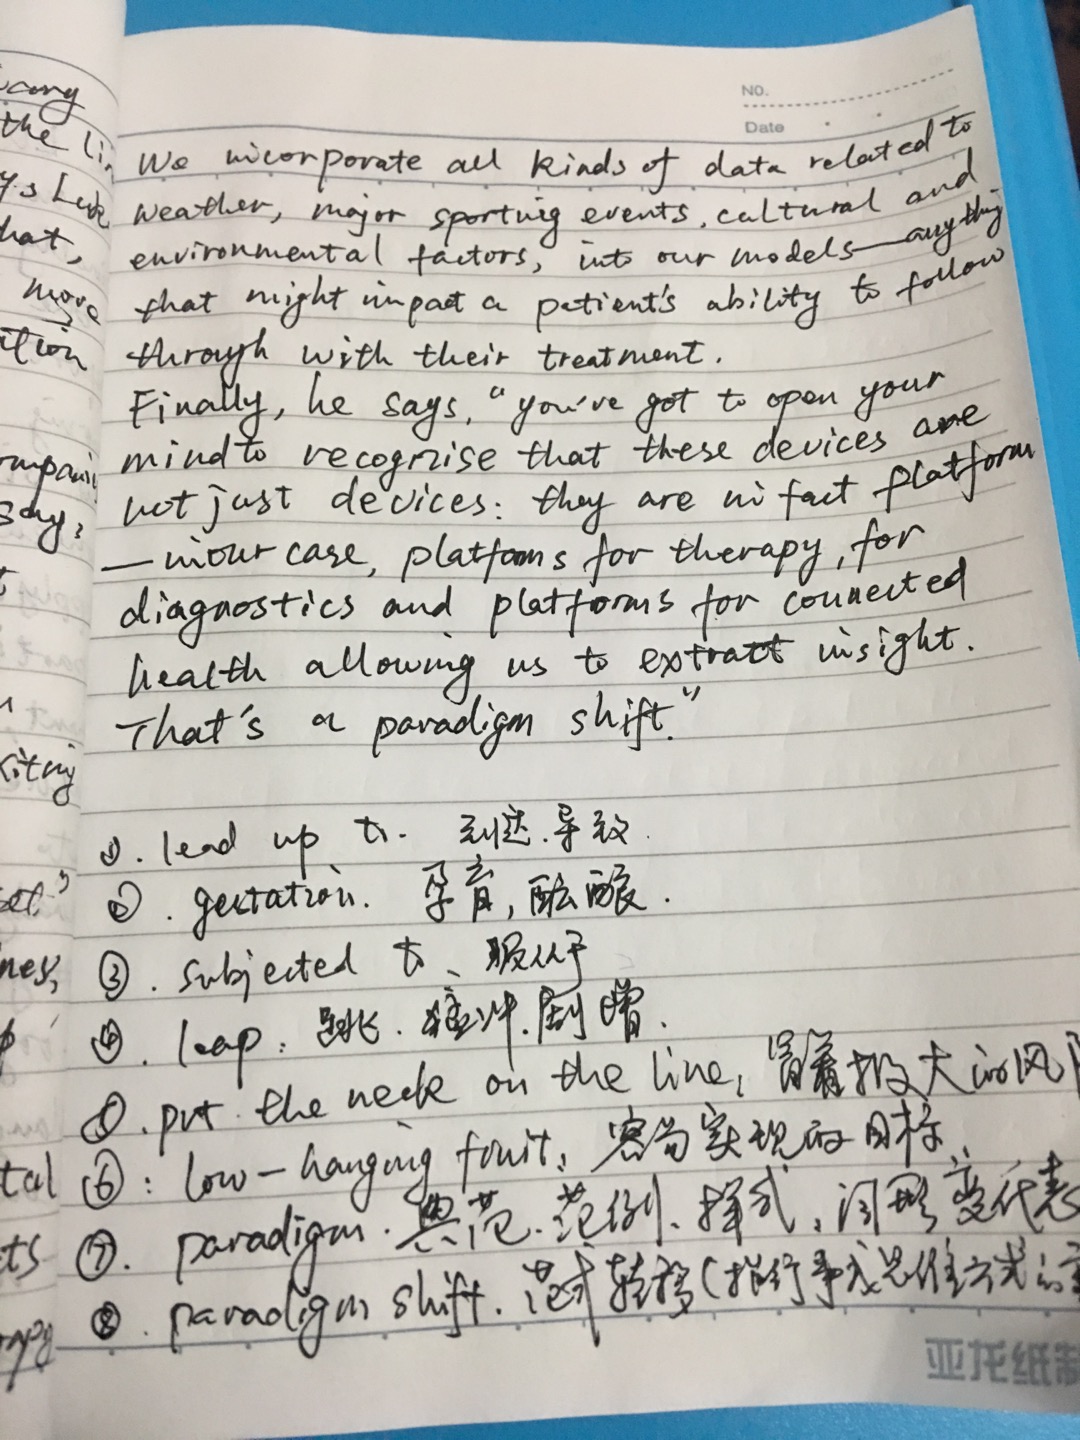 NO.
Date
We incorporate all kinds of data related to
weather, major sporting events, cultural and
environmental factors, into our models—anything
that might impact a patient's ability to follow
through with their treatment.
Finally, he says, "you've got to open your
mind to recognise that these devices are
not just devices: they are in fact platform
—in our case, platforms for therapy, for
diagnostics and platforms for connected
health allowing us to extract insight.
That's a paradigm shift."
①. lead up to. 到达.导致.
②. gestation. 孕育,酝酿.
③. subjected to、服从于
④. leap: 跳.猛冲.剧增.
⑤. put the neck on the line, 冒着极大的风
⑥: low-hanging fruit, 容易实现的目标,
⑦. paradigm. 典范.范例、样式,词形变代表
⑧. paradigm shift. 范式转移(指行事或思维方式的重
亚龙纸制
icang
the li
hat,
more
ition
mpani
say,
kiting
set,"
nes,
tal
ts
apy